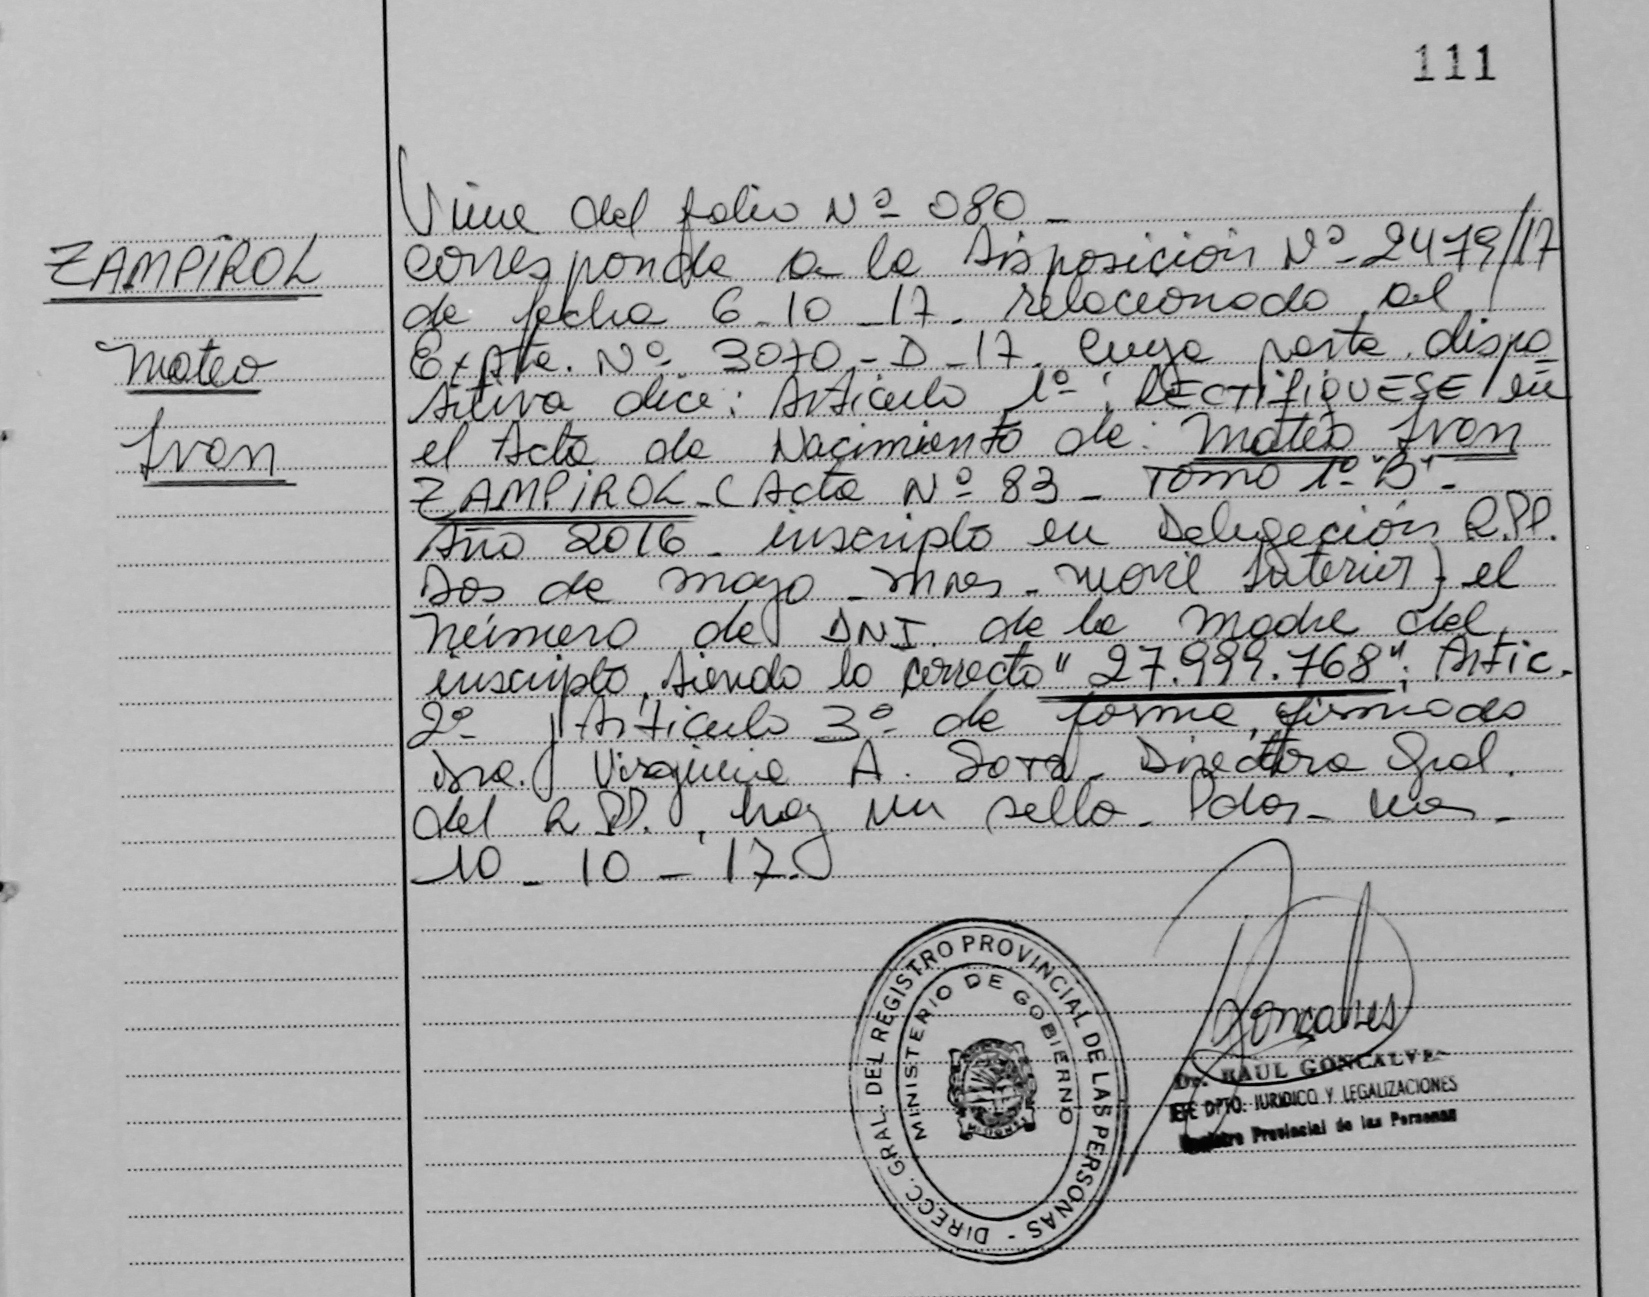 111
ZAMPIROL
Mateo
Ivan
Viene del folio Nº 080 _
corresponde a la Disposición Nº 2479/17
de fecha 6_10_17. relacionado al
Expte. Nº 3070_D_17. cuya parte dispo
sitiva dice: Articulo 1º: RECTIFIQUESE en
el Acta de Nacimiento de: Mateo Ivan
ZAMPIROL _ (Acta Nº 83 _ Tomo 1º "B" _
Año 2016 _ inscripto en Delegación R.PP.
Dos de mayo _ Mnes _ movil Interior) el
número de DNI. de la madre del
inscripto, siendo lo correcto "27.999.768"; Artic.
2º y Articulo 3º de forma, firmado
Dra. Virginia A. Soto _ Directora Gral.
del R.PP., hay un sello _ Pdas _ Mnes _
10 _ 10 _ 17.
DIRECC. GRAL. DEL REGISTRO PROVINCIAL DE LAS PERSONAS -
MINISTERIO DE GOBIERNO
MISIONES
Goncalves
Dr. RAUL GONCALVES
JEFE DPTO. JURIDICO Y LEGALIZACIONES
Registro Provincial de las Personas